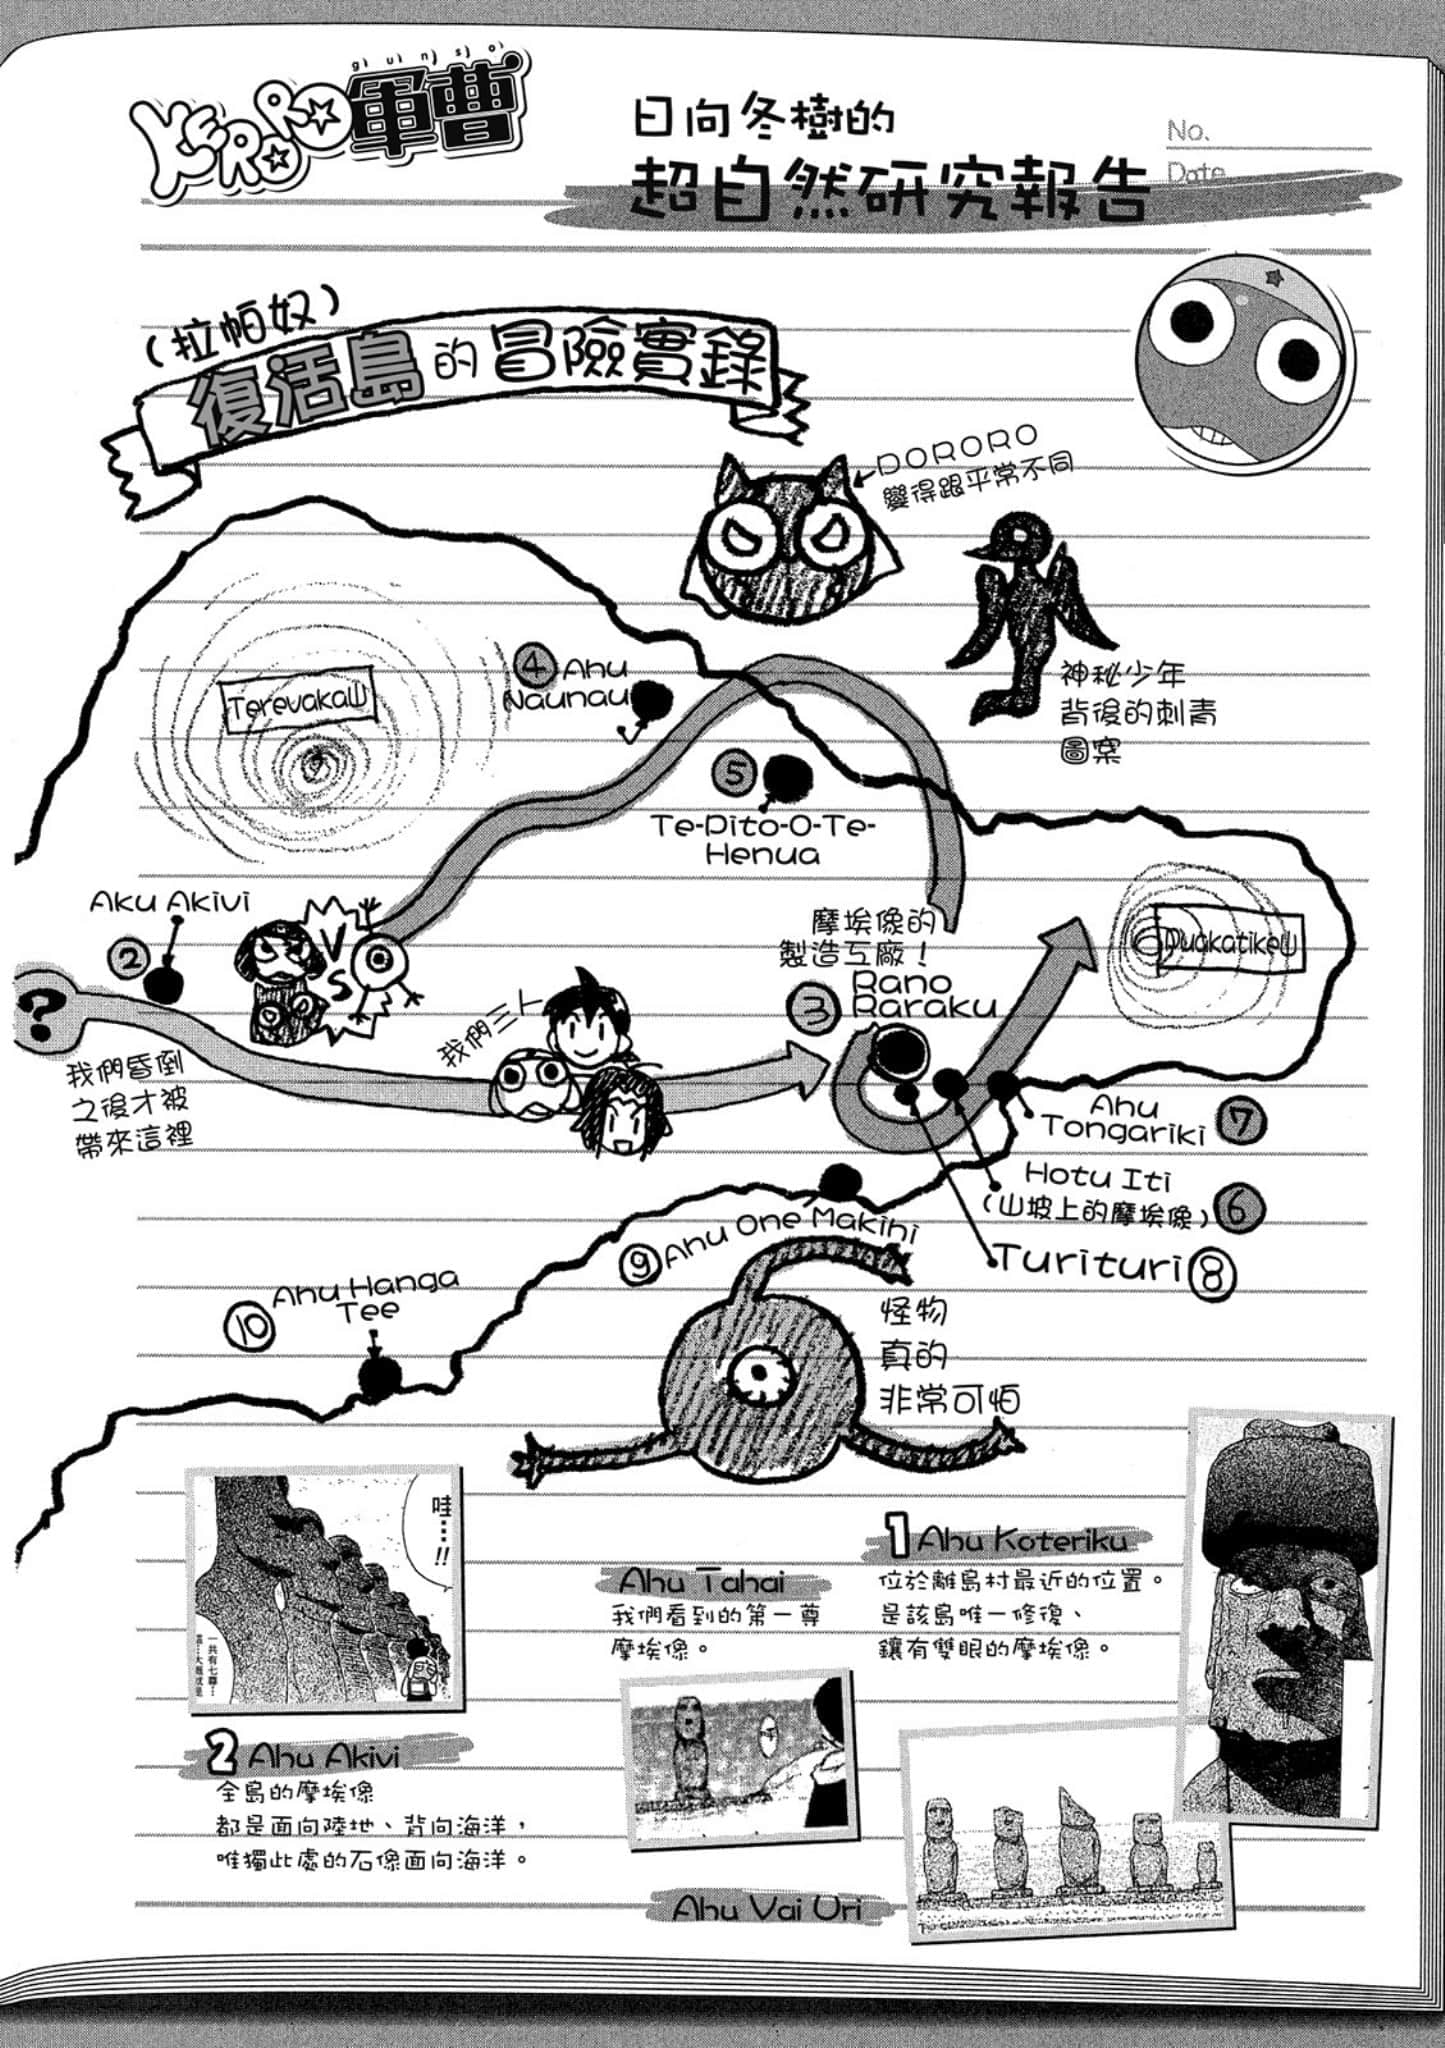 giunsjo
KERORO軍曹
日向冬樹的
超自然研究報告
No.
Date
(拉帕奴)
復活島的冒險實錄
←DORORO
變得跟平常不同
神秘少年
背後的刺青
圖案
Terevaka山
④ Ahu
Naunau
⑤
Te-Pito-O-Te-
Henua
Aku Akivi
②
VS
?
我們昏倒
之後才被
帶來這裡
我們三人
摩埃像的
製造工廠！
③ Rano
Raraku
Puakatike山
Ahu
Tongariki ⑦
Hotu Iti
(山坡上的摩埃像) ⑥
Turituri ⑧
⑨ Ahu One Makihi
⑩ Ahu Hanga
Tee
怪物
真的
非常可怕
哇……!!
一共有七尊…
2 Ahu Akivi
全島的摩埃像
都是面向陸地、背向海洋，
唯獨此處的石像面向海洋。
Ahu Tahai
我們看到的第一尊
摩埃像。
1 Ahu Koteriku
位於離島村最近的位置。
是該島唯一修復、
鑲有雙眼的摩埃像。
Ahu Vai Uri